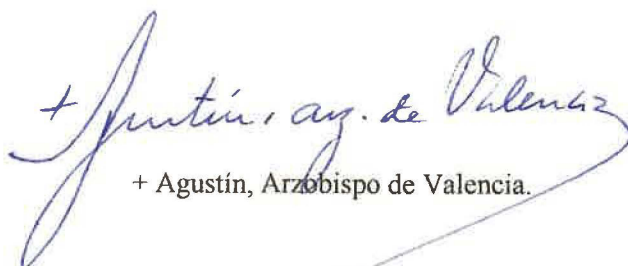 + Agustín, arz. de Valencia
+ Agustín, Arzobispo de Valencia.